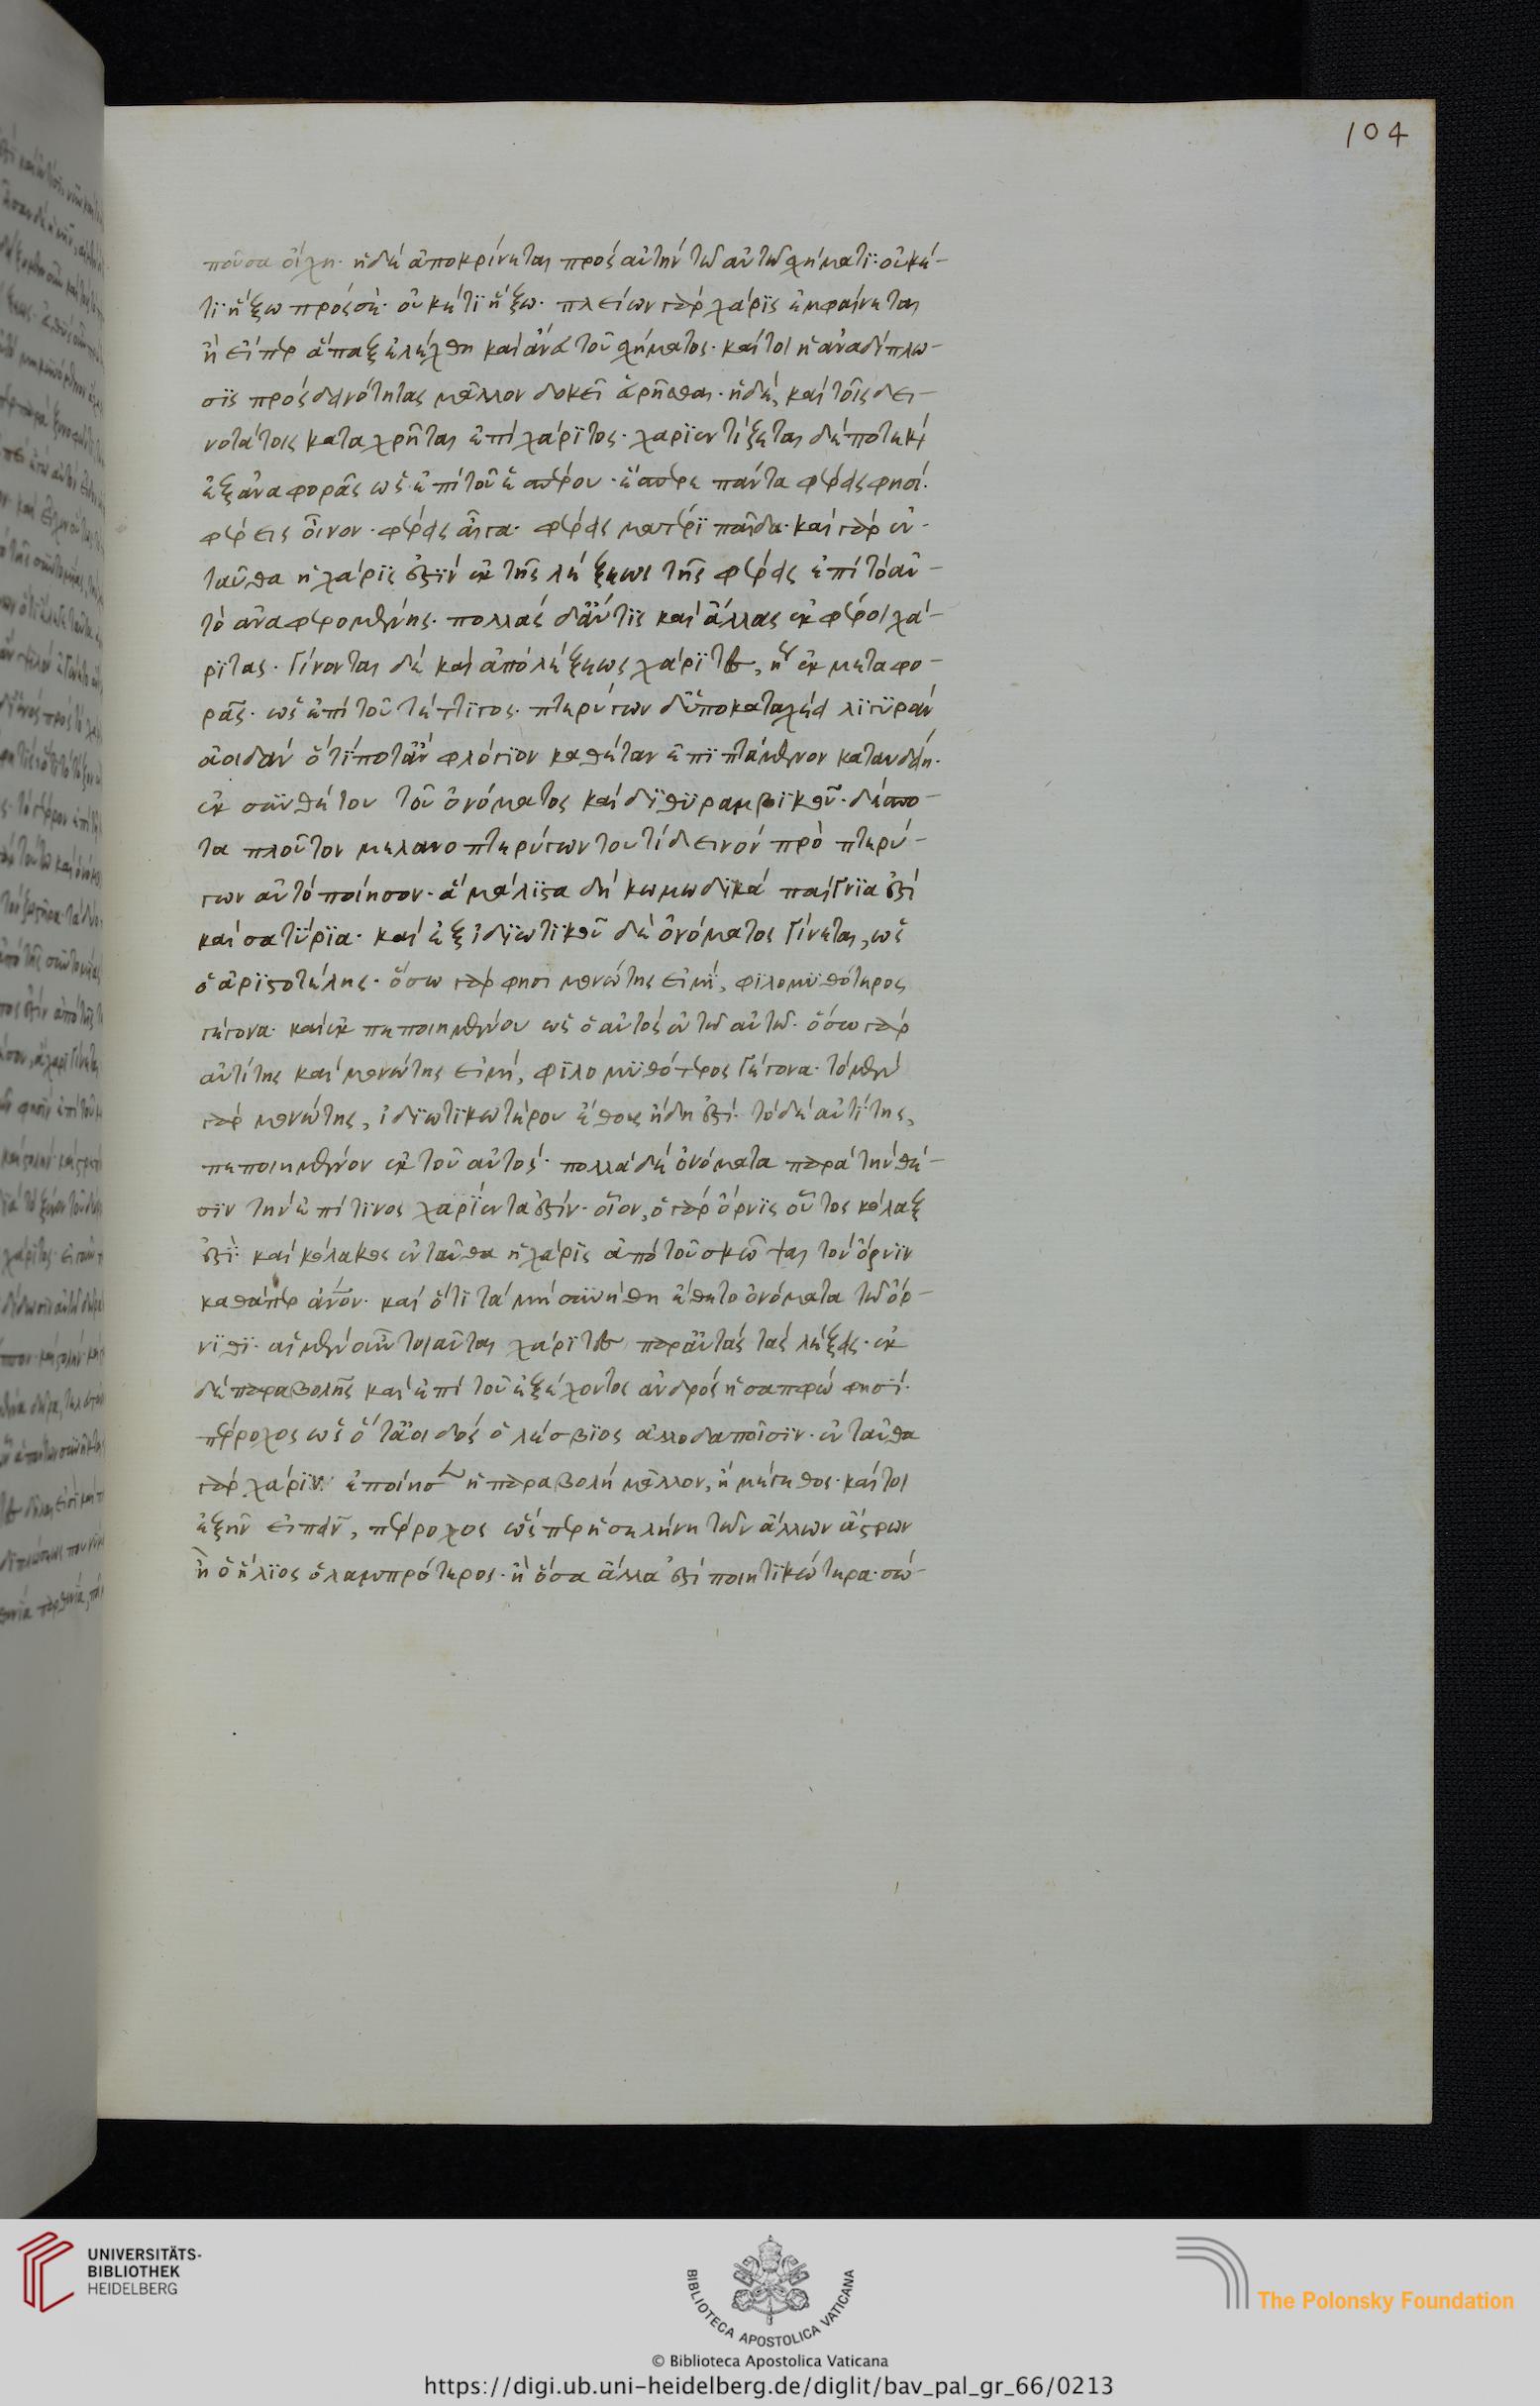 104
ποῦσα οἴχη· ἡ δὲ ἀποκρίνεται πρὸς αὐτὴν τῶ αὐτῶ σχήματι· οὐκέ-
τι ἥξω πρὸς σέ· οὐκέτι ἥξω· πλείων γὰρ χάρις ἐμφαίνεται
ἢ εἴπερ ἅπαξ ἐλέχθη καὶ ἄνευ τοῦ σχήματος· καίτοι ἡ ἀναδίπλω-
σις πρὸς δεινότητας μᾶλλον δοκεῖ εὑρῆσθαι· ἡ δὲ, καὶ τοῖς δει-
νοτάτοις καταχρῆται ἐπὶ χάριτος· χαριεντίζεται δέ ποτε καὶ
ἐξ ἀναφορᾶς ὡς ἐπὶ τοῦ ἑσπέρου· ἕσπερε πάντα φέρεις φησί·
φέρεις οἶνον· φέρεις αἶγα· φέρεις ματέρι παῖδα· καὶ γὰρ ἐν-
ταῦθα ἡ χάρις ἐστὶν ἐκ τῆς λέξεως τῆς φέρεις ἐπὶ τὸ αὐ-
τὸ ἀναφερομένης· πολλὰς δ' ἄν τις καὶ ἄλλας ἐκφέροι χά-
ριτας· γίνονται δὲ καὶ ἀπὸ λέξεως χάριτες, ἢ ἐκ μεταφο-
ρᾶς· ὡς ἐπὶ τοῦ τέττιγος· πτερύγων δ' ὑποκαταχέει λιγυρὰν
ἀοιδὰν ὅ τι ποτ' ἂν φλόγιον καθέταν ἐπιπτάμενον καταυδείη·
ἐκ συνθέτου τοῦ ὀνόματος καὶ διθυραμβικοῦ· δέσπο-
τα πλοῦτον μελανοπτερύγων τουτὶ δεινὸν πρὸ πτερύ-
γων αὐτὸ ποίησον· ἃ μάλιστα δὴ κωμωδικὰ παίγνια ἐστὶ
καὶ σατύρια· καὶ ἐξ ἰδιωτικοῦ δὲ ὀνόματος γίνεται, ὡς
ὁ ἀριστοτέλης· ὅσω γὰρ φησι μονώτης εἰμὶ, φιλομυθότερος
γέγονα· καὶ ἐκ πεποιημένου ὡς ὁ αὐτὸς ἐν τῶ αὐτῶ· ὅσω γὰρ
αὐτίτης καὶ μονώτης εἰμὶ, φιλομυθότερος γέγονα· τὸ μὲν
γὰρ μονώτης, ἰδιωτικωτέρου ἔθους ἤδη ἐστί· τὸ δὲ αὐτίτης,
πεποιημένον ἐκ τοῦ αὐτός· πολλὰ δὲ ὀνόματα παρὰ τὴν θέ-
σιν τὴν ἐπί τινος χαρίεντα ἐστίν· οἷον, ὁ γὰρ ὄρνις οὗτος κόλαξ
ἐστί· καὶ κόλακος ἐνταῦθα ἡ χάρις ἀπὸ τοῦ σκῶψαι τὸν ὄρνιν
καθάπερ ἄνον· καὶ ὅτι τὰ μὴ συνήθη ἔθετο ὀνόματα τῶ ὄρ-
νιθι· αἱ μὲν οὖν τοιαῦται χάριτες παρ' αὐτὰς τὰς λέξεις· ἐκ
δὲ παραβολῆς καὶ ἐπὶ τοῦ ἐξέχοντος ἀνδρὸς ἡ σαπφώ φησί·
πέρροχος ὡς ὅτ' ἀοιδὸς ὁ λέσβιος ἀλλοδαποῖσιν· ἐνταῦθα
γὰρ χάριν ἐποίησεν ἡ παραβολὴ μᾶλλον, ἢ μέγεθος· καίτοι
ἐξῆν εἰπεῖν, πέρροχος ὥσπερ ἡ σελήνη τῶν ἄλλων ἄστρων
ἢ ὁ ἥλιος ὁ λαμπρότερος· ἢ ὅσα ἄλλα ἐστὶ ποιητικώτερα· σώ-
UNIVERSITÄTS-
BIBLIOTHEK
HEIDELBERG
BIBLIOTECA APOSTOLICA VATICANA
The Polonsky Foundation
© Biblioteca Apostolica Vaticana
https://digi.ub.uni-heidelberg.de/diglit/bav_pal_gr_66/0213